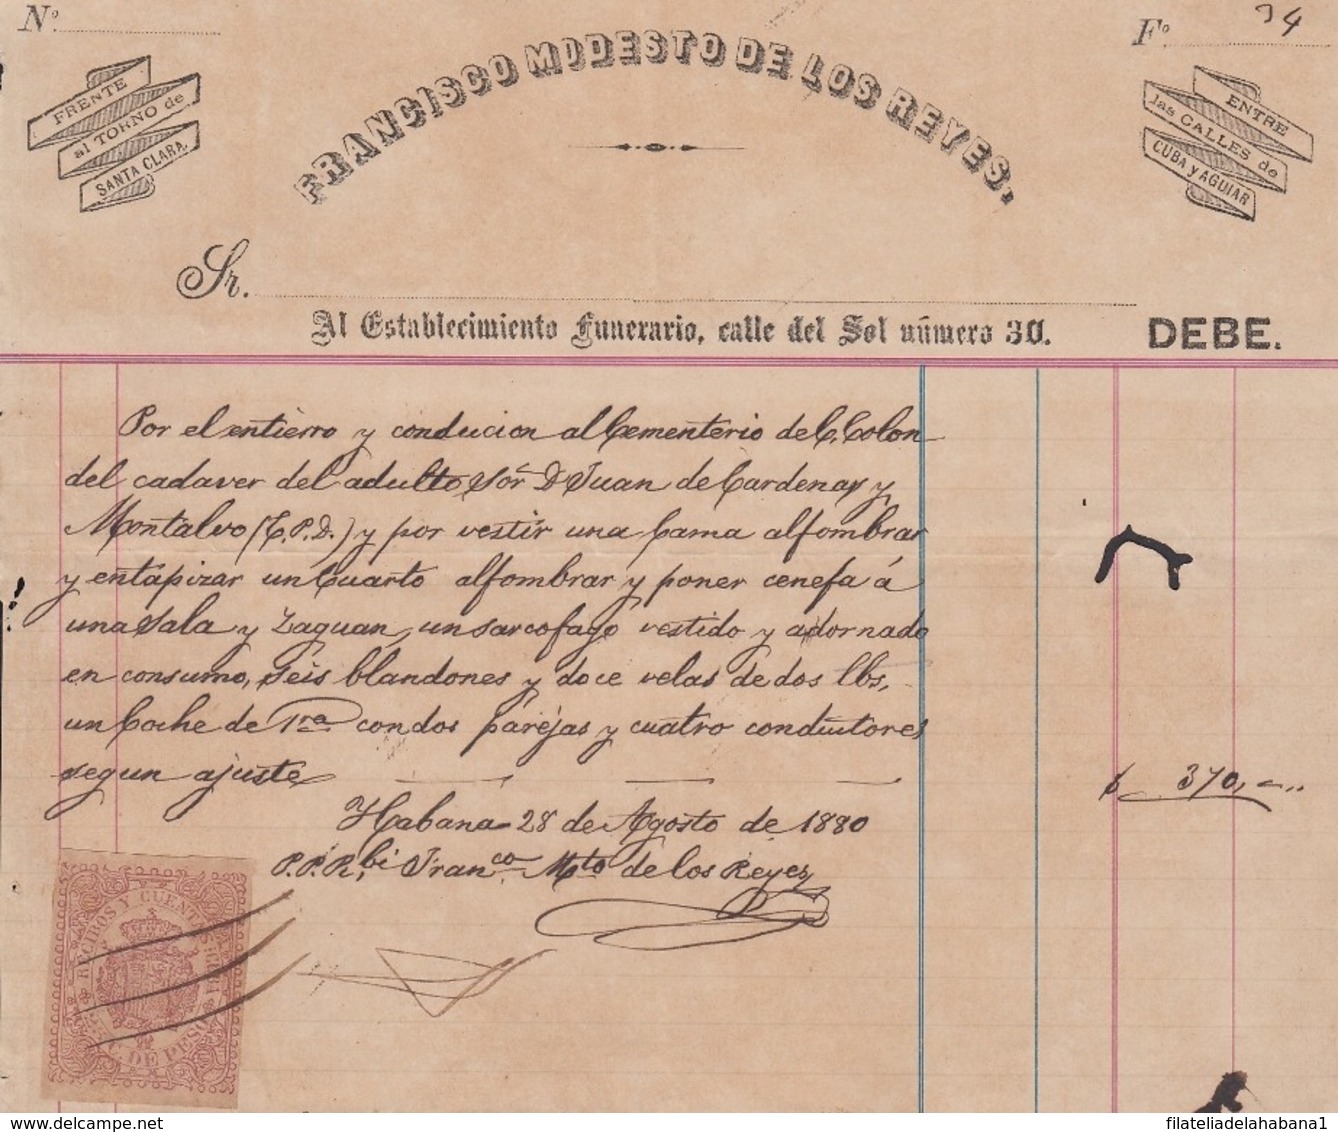 Nº
Fº 34
FRENTE
al TORNO de
SANTA CLARA.
FRANCISCO MODESTO DE LOS REYES.
ENTRE
las CALLES de
CUBA y AGUIAR
Sr.
Al Establecimiento Funerario, calle del Sol número 30. DEBE.
Por el entierro y conducion al Cementerio de C. Colon
del cadaver del adulto Sor. D Juan de Cardenas y
Montalvo (E.P.D.) y por vestir una Cama alfombrar
y entapizar un Cuarto alfombrar y poner cenefa á
una Sala y Zaguan, un sarcofago vestido y adornado
en consumo, Seis blandones y doce velas de dos lbs,
un Coche de 1ra con dos parejas y cuatro conductores
segun ajuste $ 370,—..
Habana 28 de Agosto de 1880
P.P. Rbi Franco Mto de los Reyes
RECIBOS Y CUENTAS
C. DE PESO
filateliadelahabana1